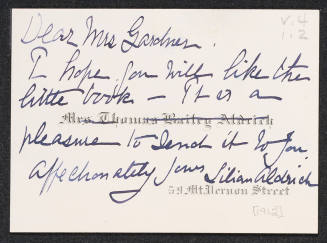 Dear Mrs Gardner.
v.4
1.2
I hope you will like the
little book – It is a
Mrs. Thomas Bailey Aldrich
pleasure to send it to you
affectionately yours Lilian Aldrich
59 Mt. Vernon Street
[1912]